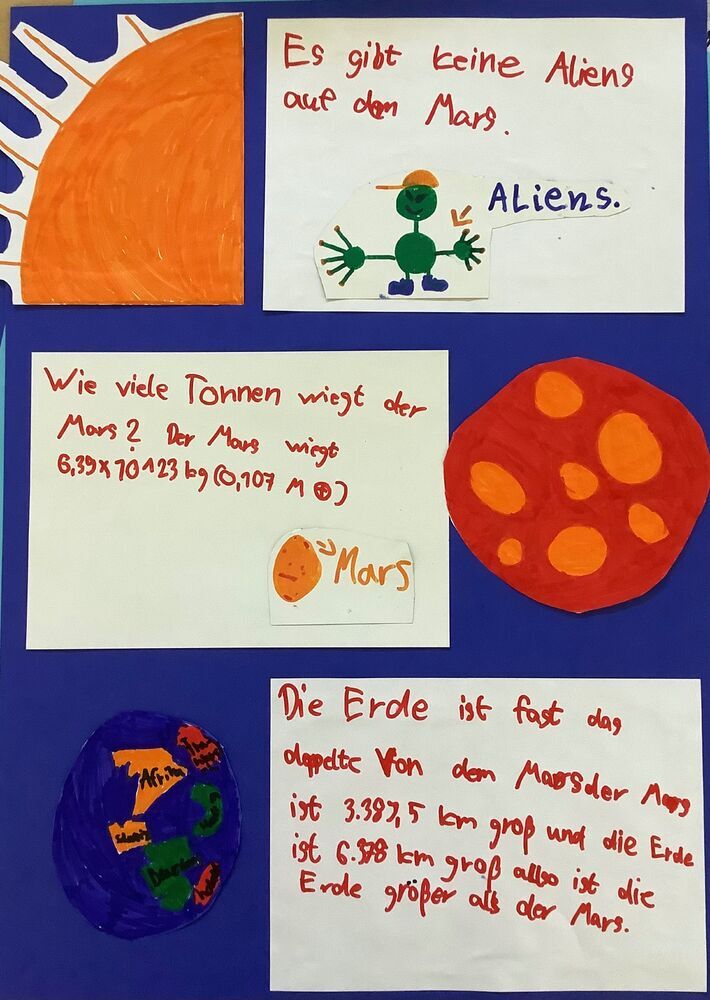 Es gibt keine Aliens
auf dem Mars.
ALiens.
Wie viele Tonnen wiegt der
Mars? Der Mars wiegt
6,39x10^23 kg (0,107 M ⊕)
Mars
Die Erde ist fast das
doppelte von dem Mars der Mars
ist 3.389,5 km groß und die Erde
ist 6.378 km groß allso ist die
Erde größer als der Mars.
Afrika